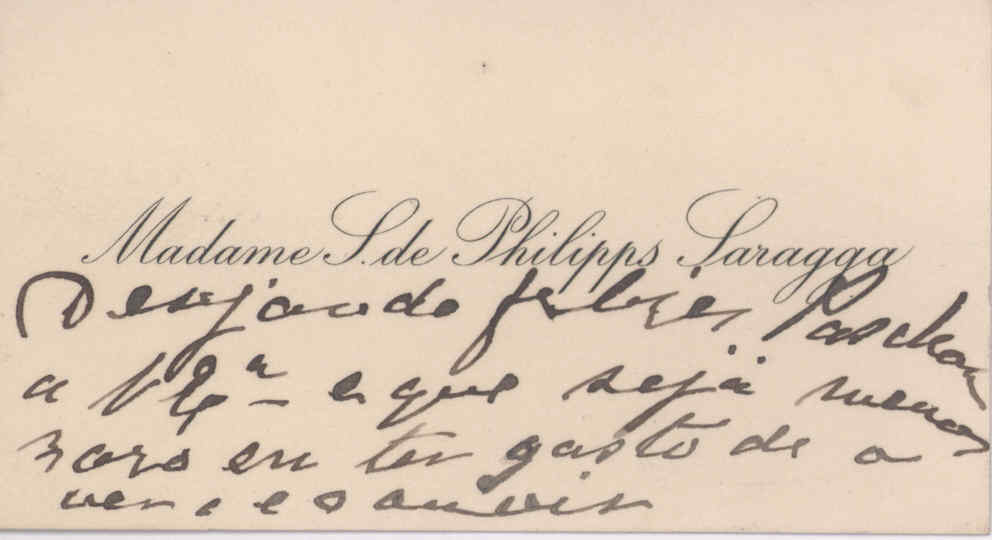 Madame S. de Philipps Saragga
Desejando felizes Paschoas
a V Exª – e que seja menos
raro en ter gosto de a
ver, e o ouvir